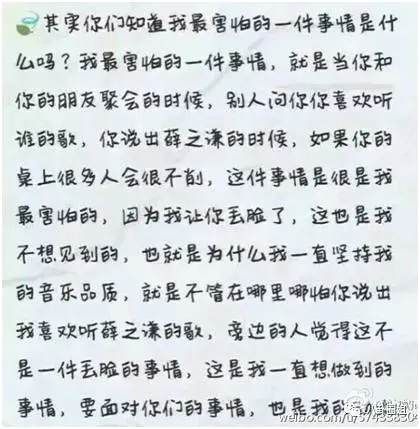 其实你们知道我最害怕的一件事情是什
么吗？我最害怕的一件事情，就是当你和
你的朋友聚会的时候，别人问你你喜欢听
谁的歌，你说出薛之谦的时候，如果你的
桌上很多人会很不削，这件事情是很是我
最害怕的，因为我让你丢脸了，这也是我
不想见到的，也就是为什么我一直坚持我
的音乐品质，就是不管在哪里哪怕你说出
我喜欢听薛之谦的歌，旁边的人觉得这不
是一件丢脸的事情，这是我一直想做到的
事情，要面对你们的事情，也是我的